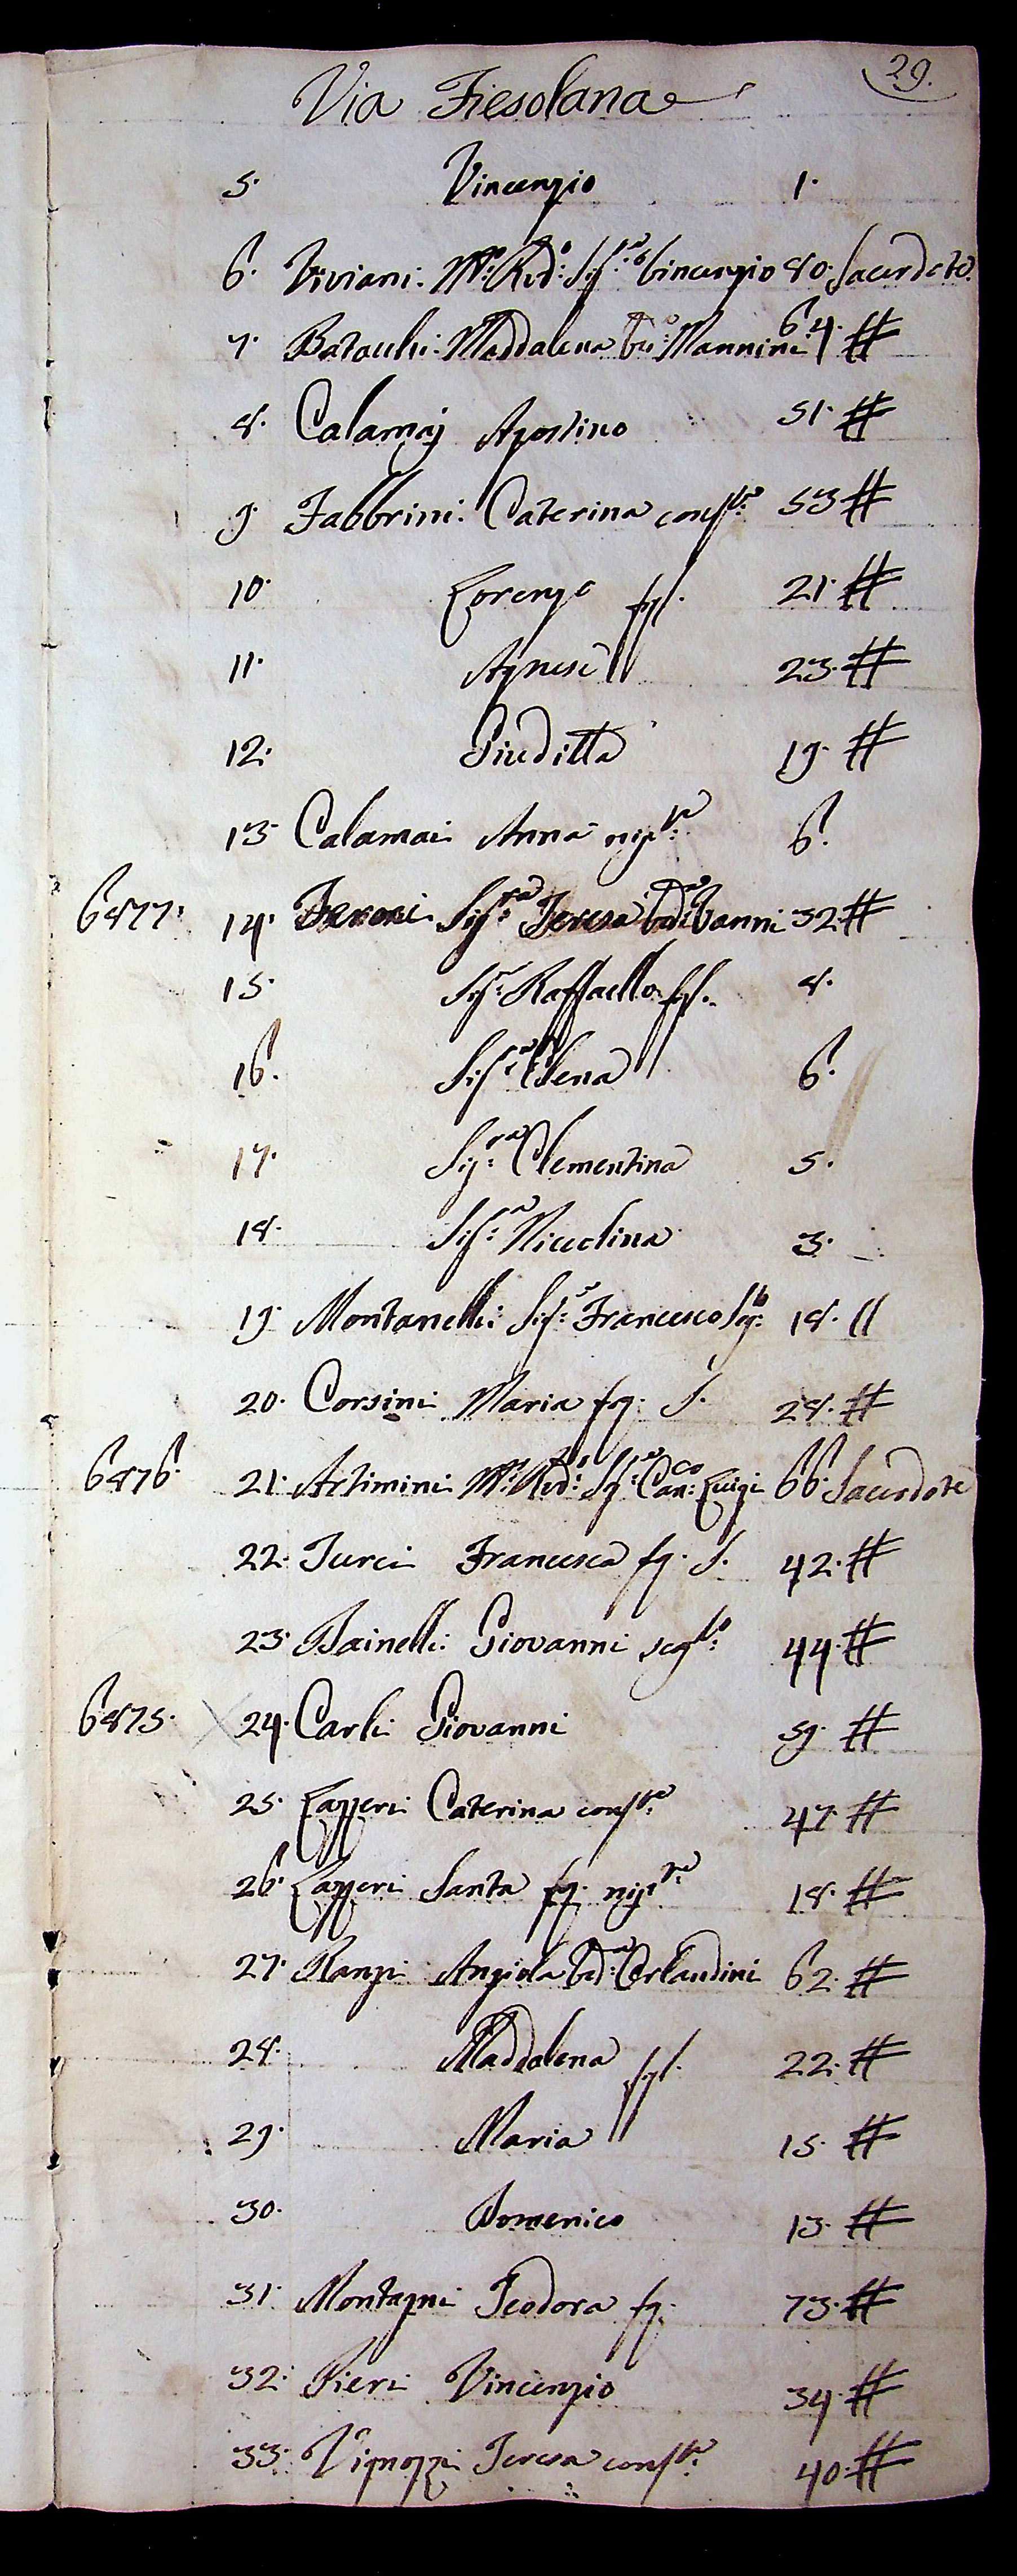 29.
Via Fiesolana
5. Vincenzio 1.
6. Viviani M.to Red.o Sig.re Vincenzio 80. Sacerdote
7. Batacchi Maddalena ved.a Mannini 64. #
8. Calamaj Agostino 51. #
9. Fabbrini Caterina cons.te 53 #
10. Lorenzo figl. 21. #
11. Agnese 23. #
12. Giuditta 19. #
13 Calamai Anna nip.te 6.
6877. 14. Sig.ra Teresa ved.a Vanni 32. #
15. Sig.r Raffaello figl. 8.
16. Sig.ra Elena 6.
17. Sig.ra Clementina 5.
18. Sig.ra Niccolina 3.
19. Montanelli Sig.r Francesco 18. //
20. Corsini Maria fg. S. 28. #
6876. 21. Artimini M.to Red.o Sig.re Can.co Luigi 66. Sacerdote
22. Turci Francesca fg. S. 42. #
23. Bainelli Giovanni seg.to 44. #
6875. 24. Carli Giovanni 59. #
25. Lazzeri Caterina cons.te 47. #
26. Lazzeri Santa fg. nip.te 18. #
27. Ranzi Angiola ved.a Orlandini 62. #
28. Maddalena figl. 22. #
29. Maria 15. #
30. Domenico 13. #
31. Montagni Teodora fg. 73. #
32. Pieri Vincenzio 34. #
33. Vignozzi Teresa cons.te 40. #